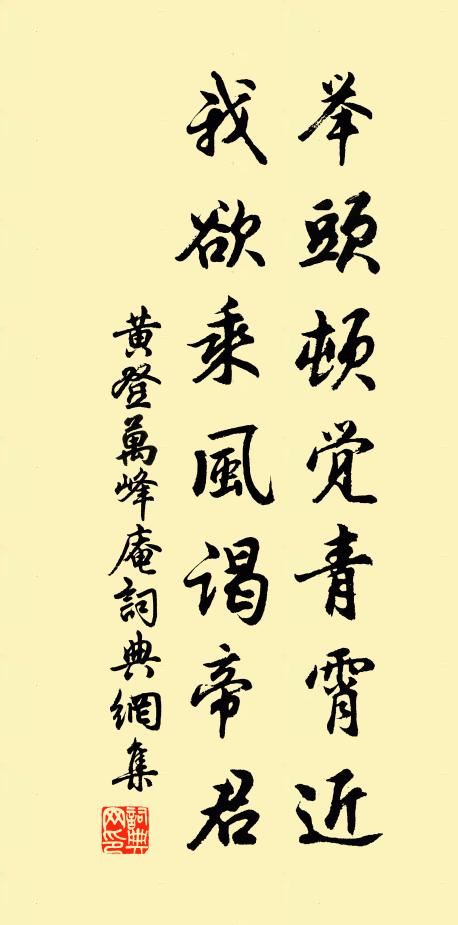 举頭顿覺青霄近
我欲乘風谒帝君
黄登萬峰庵詞典網集
詞典網印